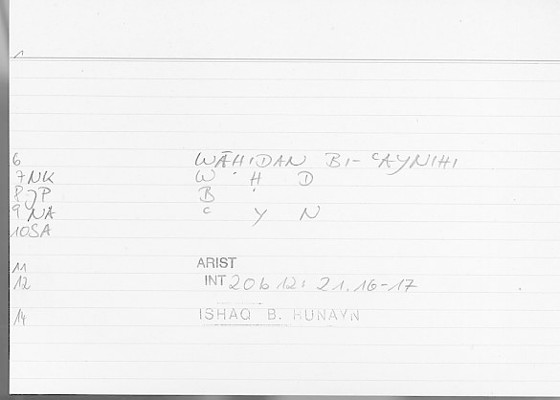 1
6 WĀḤIDAN BI-ʿAYNIHI
7NK W Ḥ D
8JP B
9NA ʿ Y N
10SA
11 ARIST
12 INT 20b 12: 21.16-17
14 ISHAQ B. HUNAYN